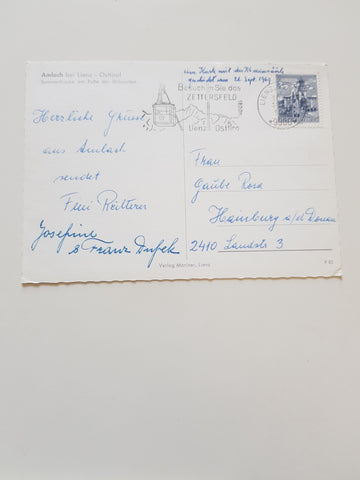 Amlach bei Lienz - Osttirol
Sommerfrische am Fuße der Dolomiten
eine Karte mit der
endet am 26. Sept. 1969
Besuchen Sie das
ZETTERSFELD
Lienz Osttirol
LIENZ
9900
Herzliche Grüße
aus Amlach
sendet
Reitterer
Josefine
& Franz Dufek
Frau
Gaube Rosa
Hainburg a/d Donau
2410 Landstr 3
Verlag Mariner, Lienz